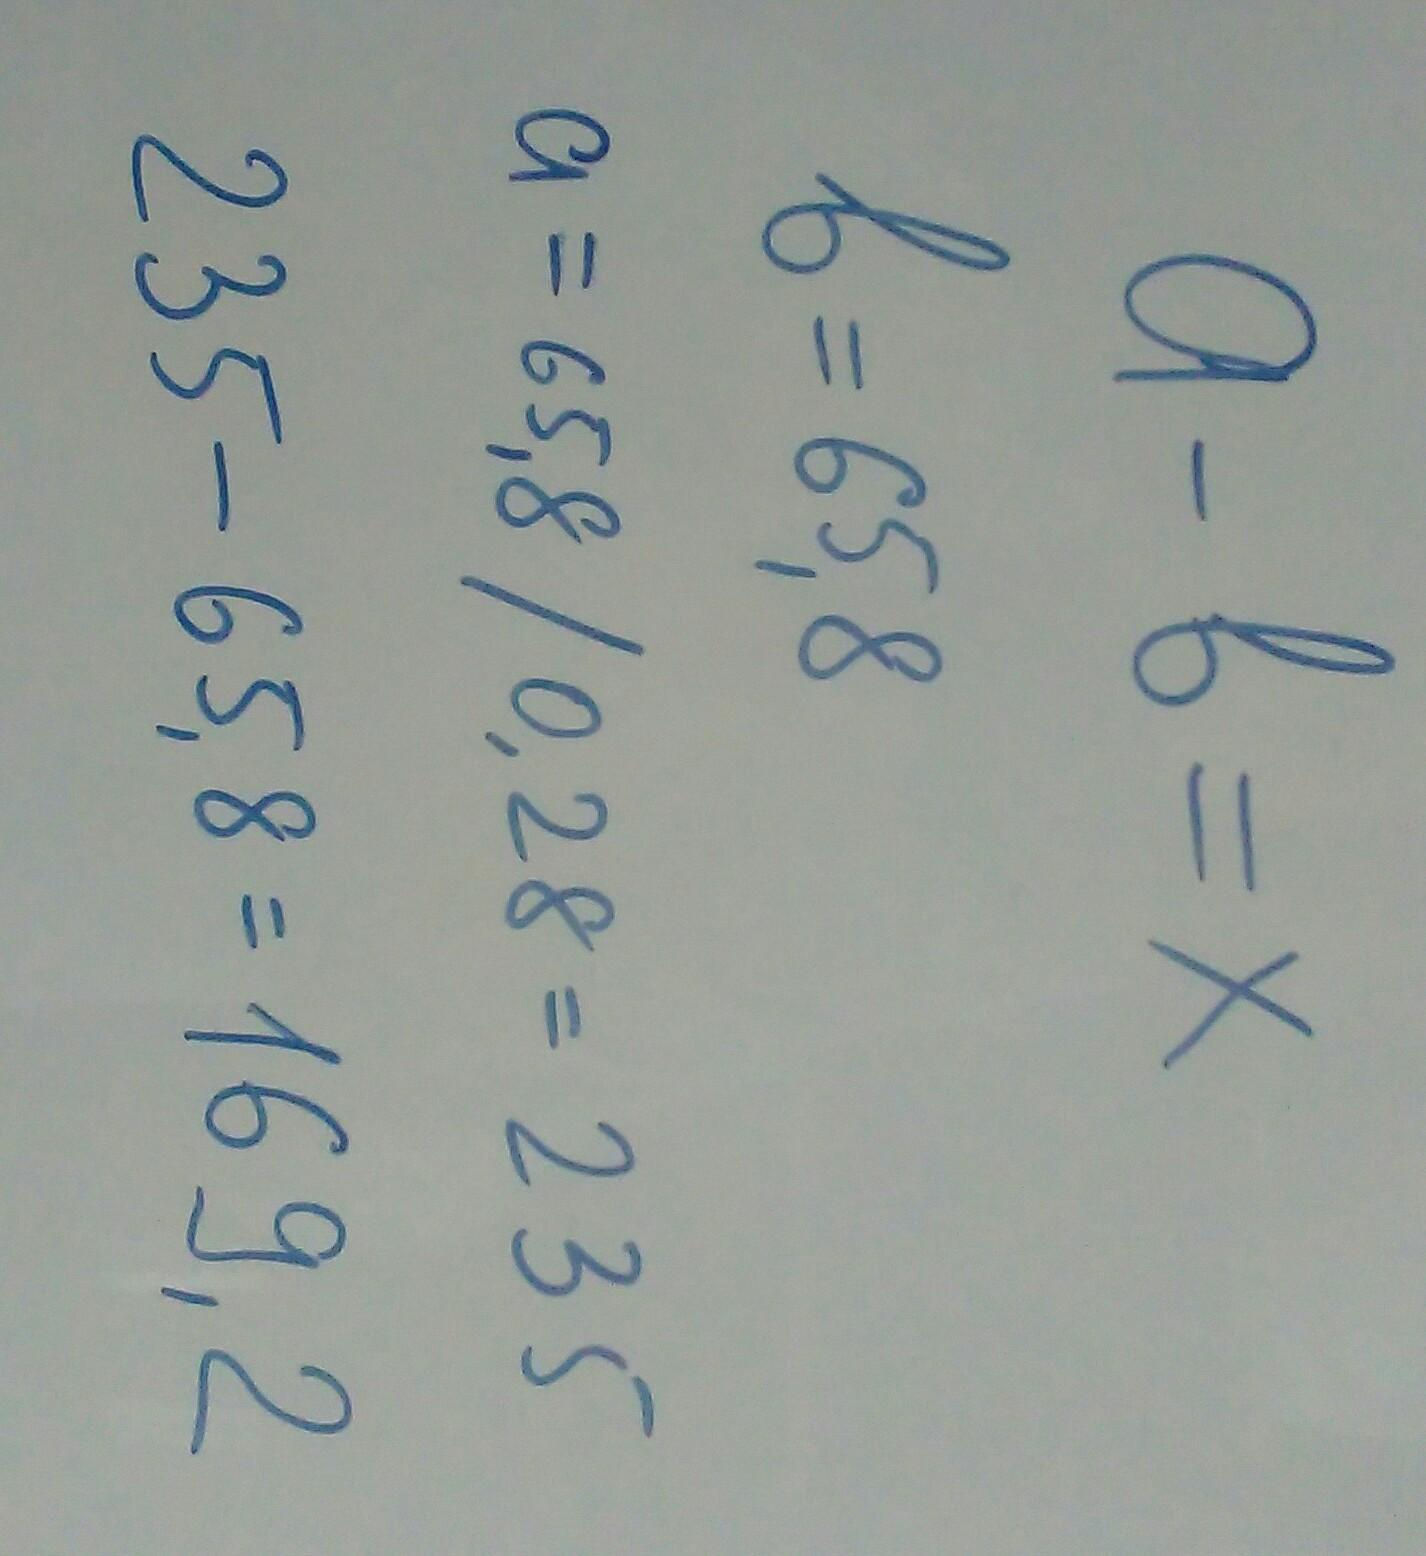 a - b = x
b = 65,8
a = 65,8 / 0,28 = 235
235 - 65,8 = 169,2